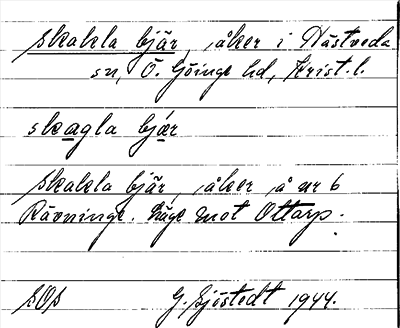 skakla bjär, åker i Nästveda
sn, Ö. Göinge hd, Krist. l.
skagla bjær
skakla bjär, åker å nr 6
Rävninge. Läge mot Ottarp.
SOS G. Sjöstedt 1944.